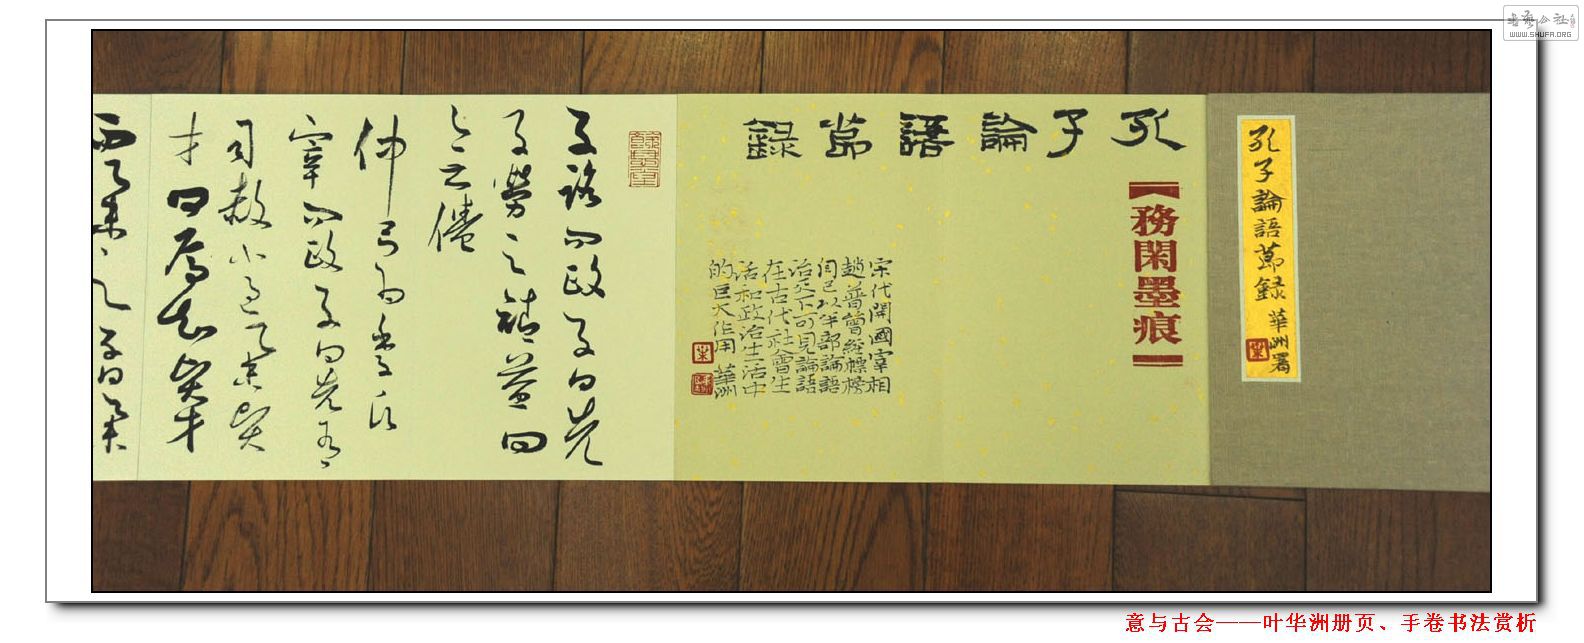 孔子論語節録
華洲署
孔子論語節録
務閑墨痕
宋代開國宰相
趙普曾經標榜
自己以半部論語
治天下可見論語
在古代社會生
活和政治生活中
的巨大作用 華洲
子路問政子曰先
之勞之請益曰
無倦
仲弓為季氏
宰問政子曰先有
司赦小過舉賢
才曰焉知賢才
而舉之子曰舉
WWW.SHUFA.ORG
意与古会——叶华洲册页、手卷书法赏析